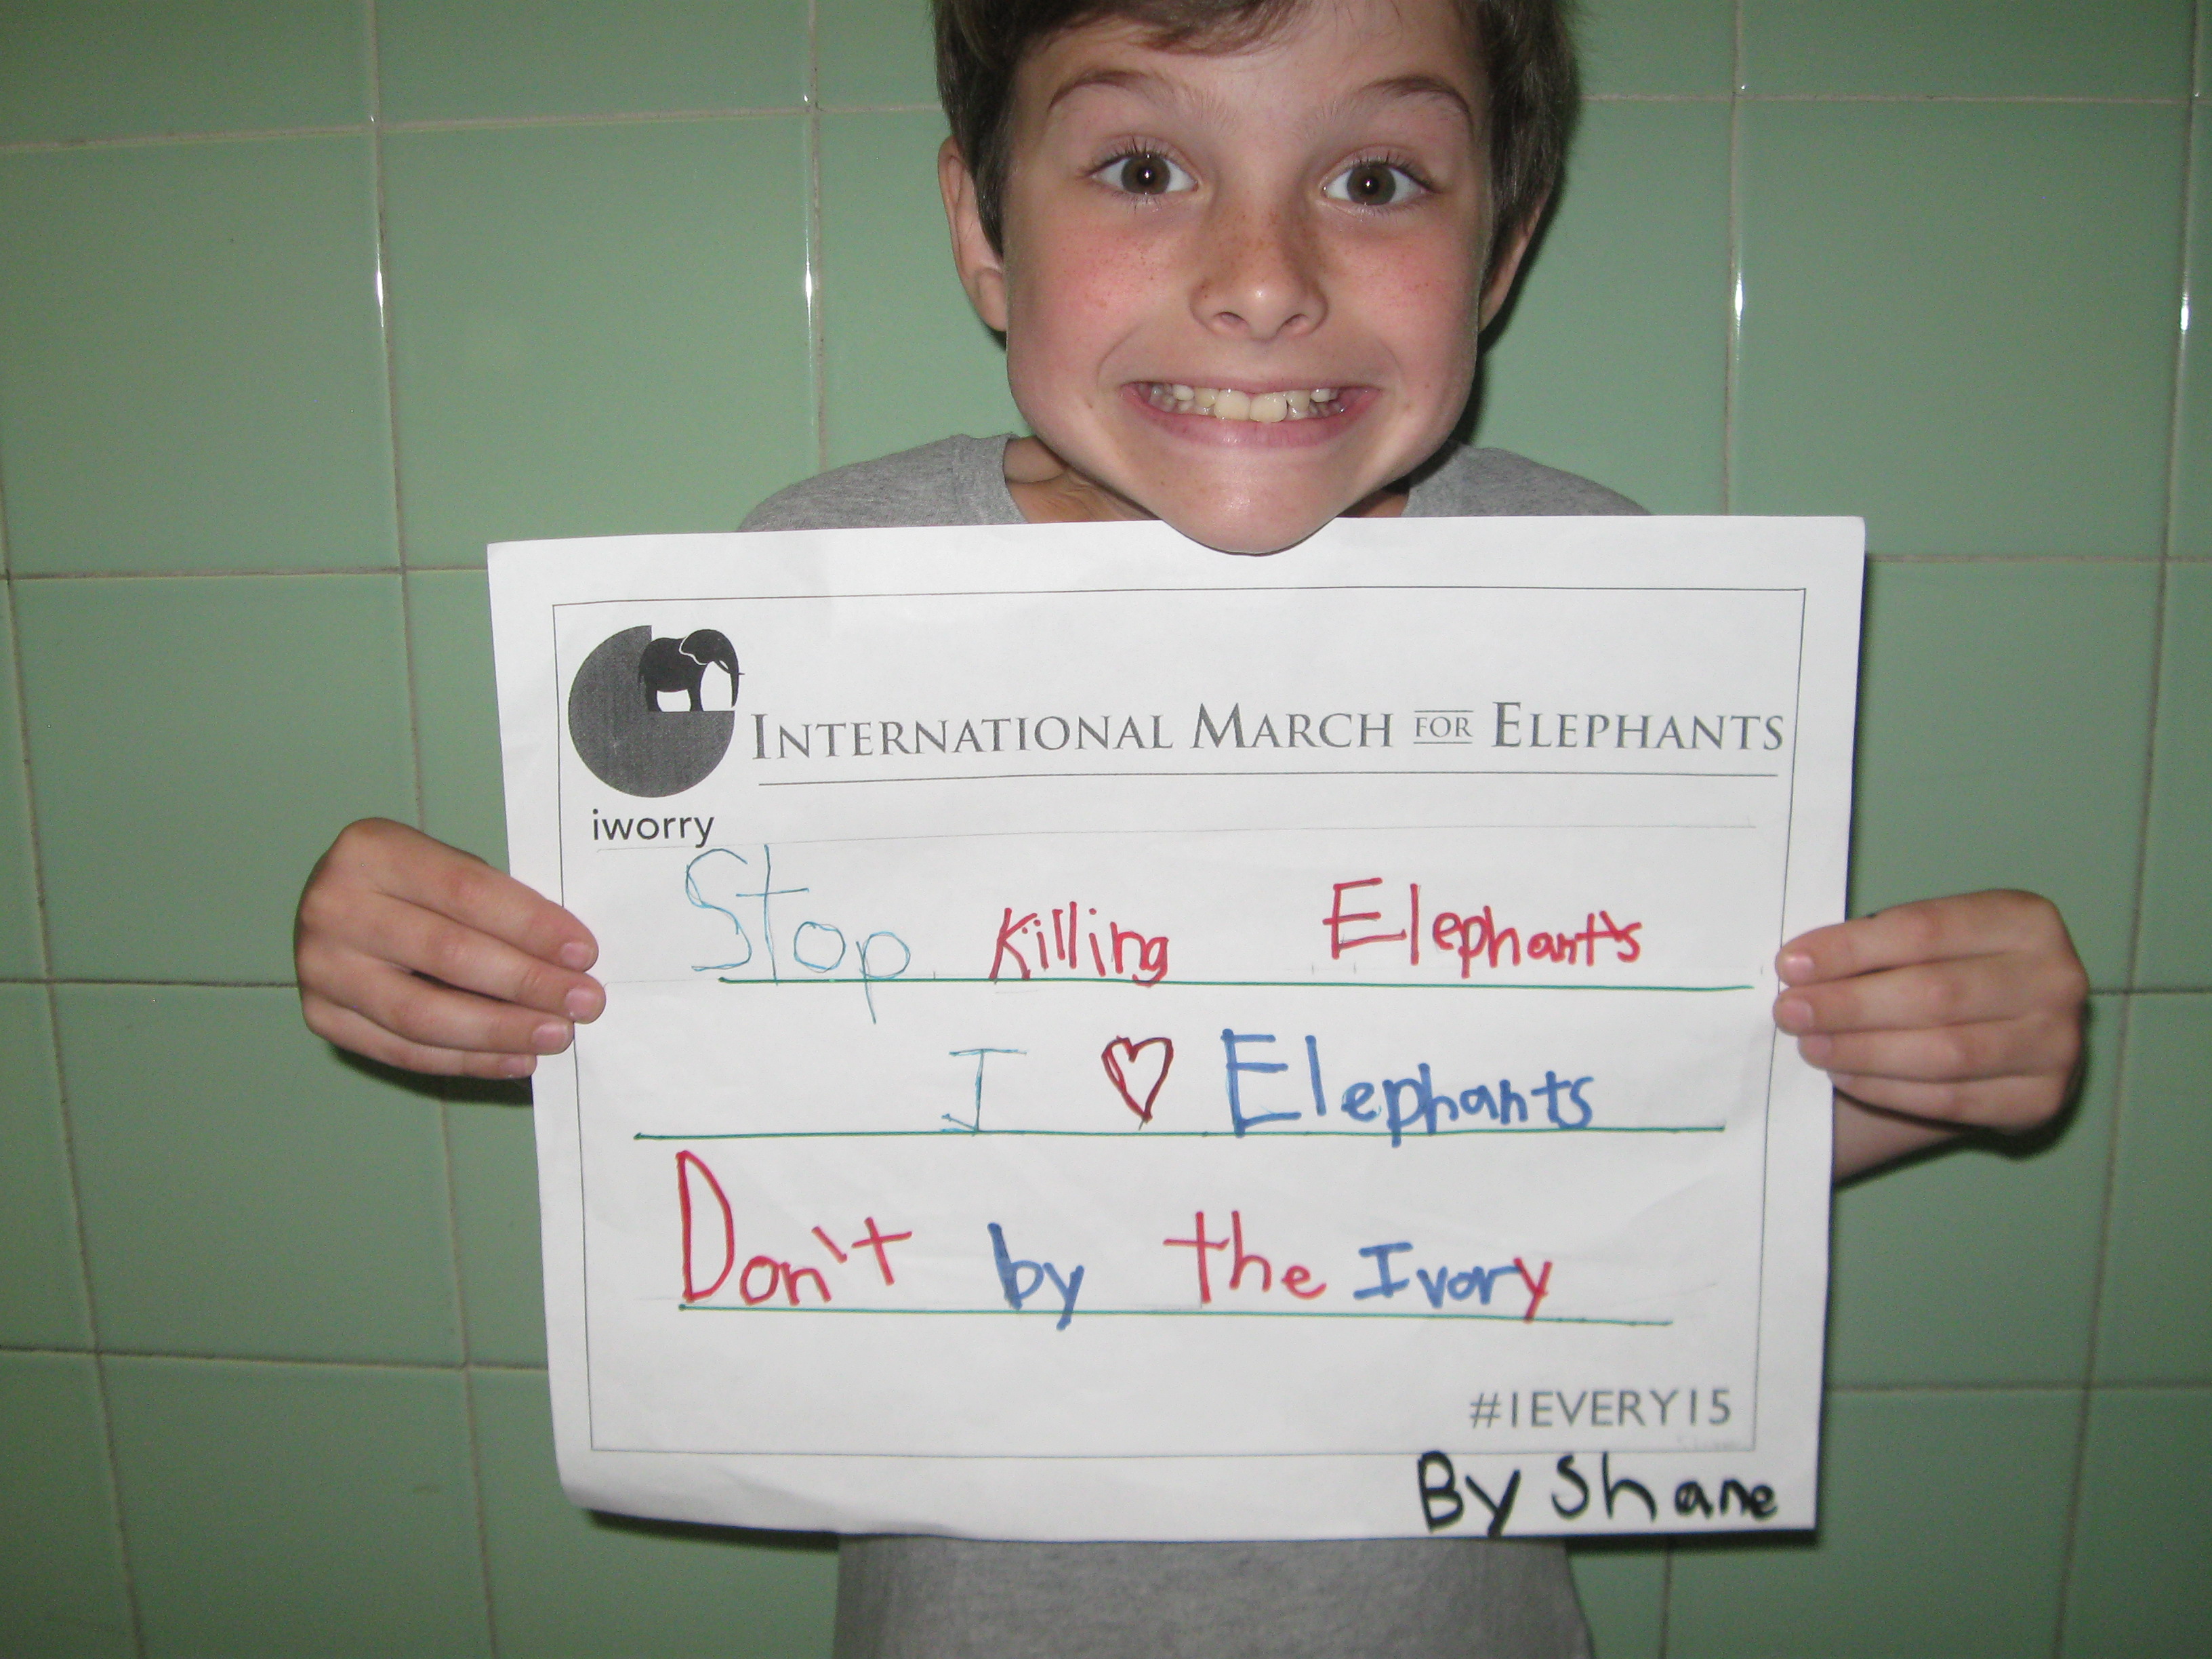 INTERNATIONAL MARCH FOR ELEPHANTS
iworry
Stop Killing Elephants
I ♡ Elephants
Don't by the Ivory
#1EVERY15
By Shane